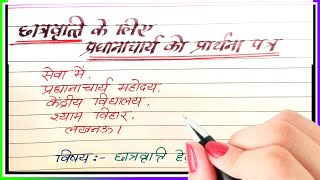 छात्रवृत्ति के लिए
प्रधानाचार्य को प्रार्थना पत्र
सेवा में,
प्रधानाचार्य महोदय,
केंद्रीय विद्यालय,
श्याम विहार,
लखनऊ।
विषय :- छात्रवृत्ति हे